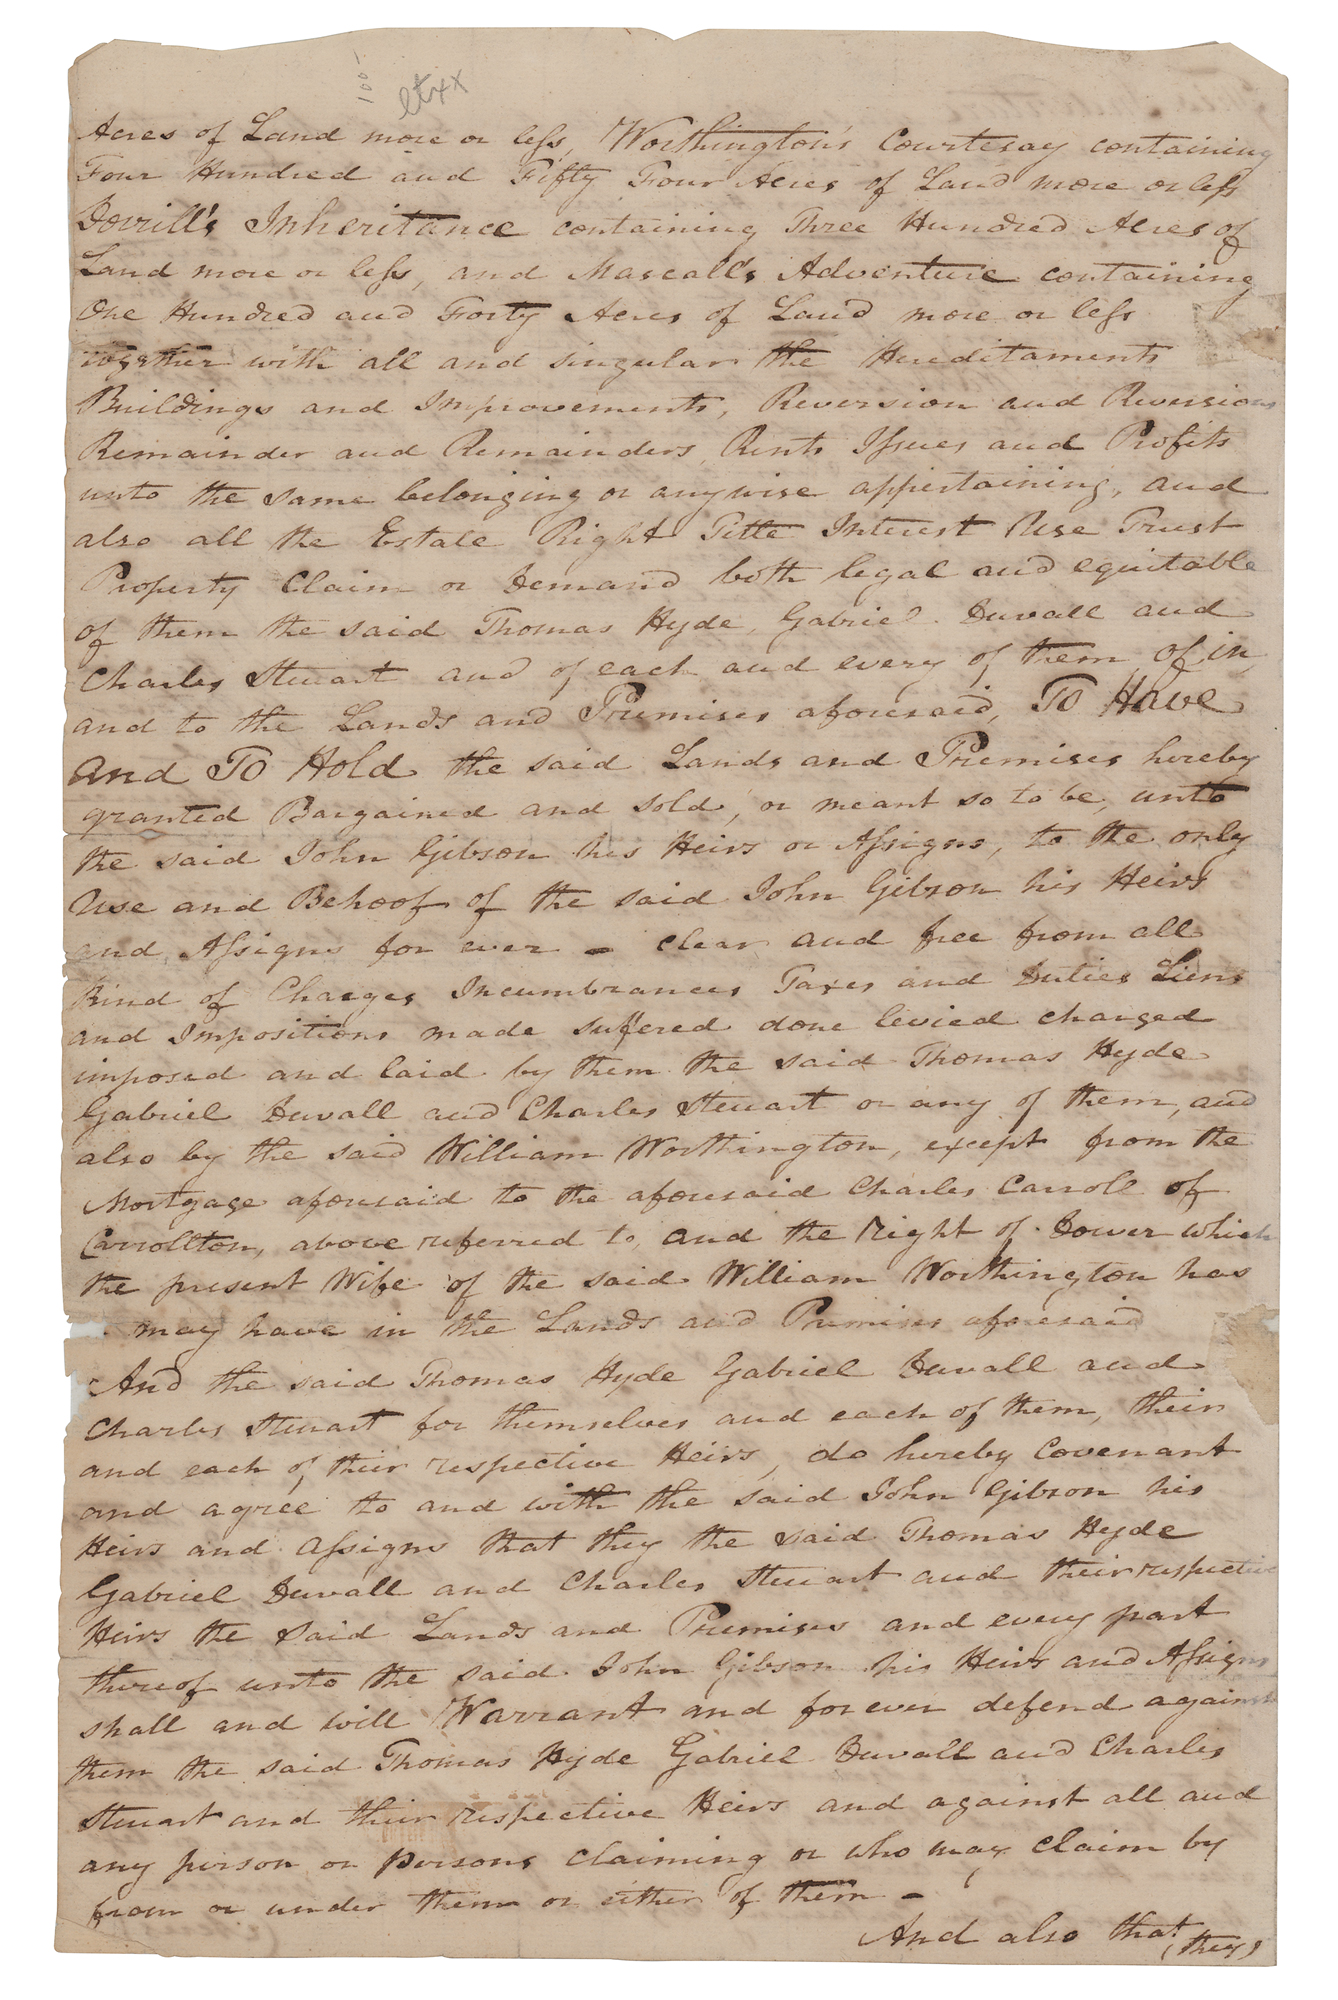 100-
Acres of Land more or less, Worthington's Courtesay containing
Four Hundred and Fifty Four Acres of Land more or less
Dorrill's Inheritance containing Three Hundred Acres of
Land more or less, and Mascall's Adventure containing
One Hundred and Forty Acres of Land more or less
together with all and singular the Hereditaments
Buildings and Improvements, Reversion and Reversions
Remainder and Remainders, Rents Issues and Profits
unto the same belonging or anywise appertaining, and
also all the Estate Right Title Interest Use Trust
Property Claim or Demand both legal and equitable
of them the said Thomas Hyde, Gabriel Duvall and
Charles Steuart and of each and every of them, of in
and to the Lands and Premises aforesaid, To Have
and To Hold the said Lands and Premises hereby
granted Bargained and sold, or meant so to be, unto
the said John Gibson his Heirs or Assigns, to the only
Use and Behoof of the said John Gibson his Heirs
and Assigns for ever - clear and free from all
Kind of Charges Incumbrances Taxes and Duties Liens
and Impositions made suffered done levied charged
imposed and laid by them the said Thomas Hyde
Gabriel Duvall and Charles Steuart or any of them, and
also by the said William Worthington, except from the
Mortgage aforesaid to the aforesaid Charles Carroll of
Carrollton, above referred to, and the Right of Dower which
the present Wife of the said William Worthington has
may have in the Lands and Premises aforesaid
And the said Thomas Hyde Gabriel Duvall and
Charles Steuart for themselves and each of them, their
and each of their respective Heirs, do hereby Covenant
and agree to and with the said John Gibson his
Heirs and Assigns that they the said Thomas Hyde
Gabriel Duvall and Charles Steuart and their respective
Heirs the said Lands and Premises and every part
thereof unto the said John Gibson his Heirs and Assigns
shall and will Warrant and for ever defend against
them the said Thomas Hyde Gabriel Duvall and Charles
Steuart and their respective Heirs and against all and
any person or persons claiming or who may claim by
from or under them or either of them -
And also that
(they)